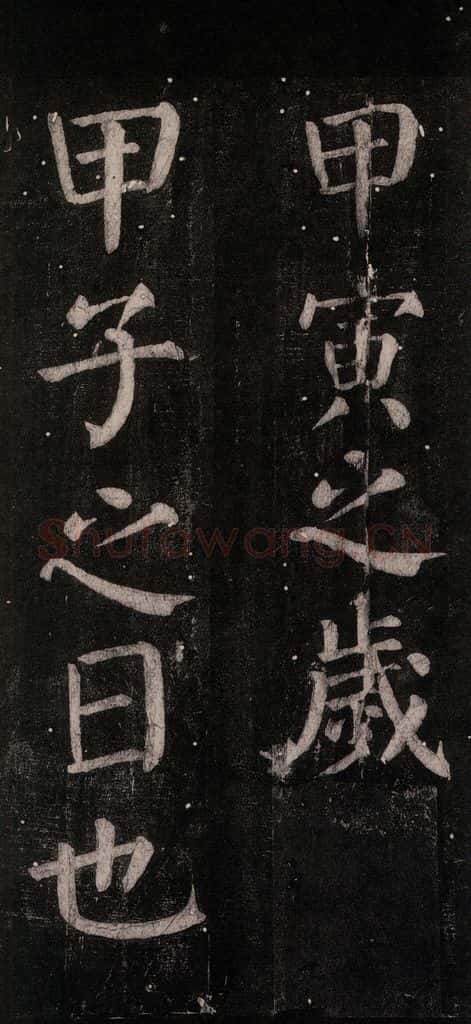 甲寅之歲
甲子之日也
Shufawang.CN